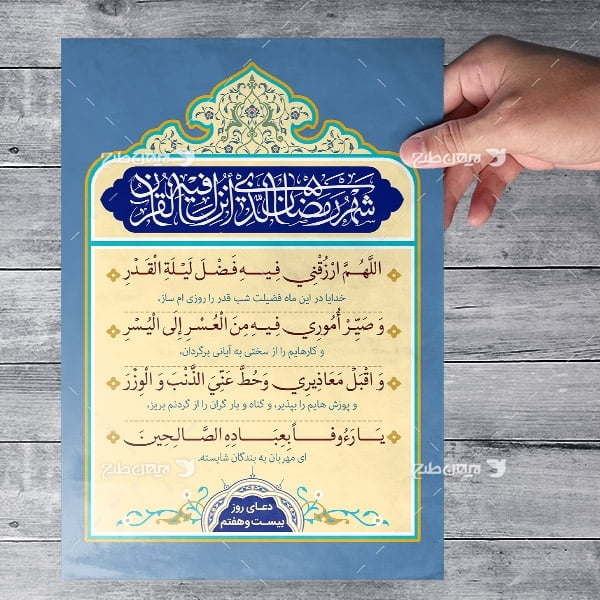 شَهْرُ رَمَضَانَ الَّذِي أُنْزِلَ فِيهِ الْقُرْآنُ
اللَّهُمَّ ارْزُقْنِي فِيهِ فَضْلَ لَيْلَةِ الْقَدْرِ
خدایا در این ماه فضیلت شب قدر را روزی ام ساز،
وَ صَيِّرْ أُمُورِي فِيهِ مِنَ الْعُسْرِ إِلَى الْيُسْرِ
و کارهایم را از سختی به آیانی برگردان،
وَ اقْبَلْ مَعَاذِيرِي وَحُطَّ عَنِّيَ الذَّنْبَ وَ الْوِزْرَ
و پوزش هایم را بپذیر، و گناه و بار گران را از گردنم بریز،
يَا رَءُوفاً بِعِبَادِهِ الصَّالِحِينَ
ای مهربان به بندگان شایسته.
دعای روز
بیست و هفتم